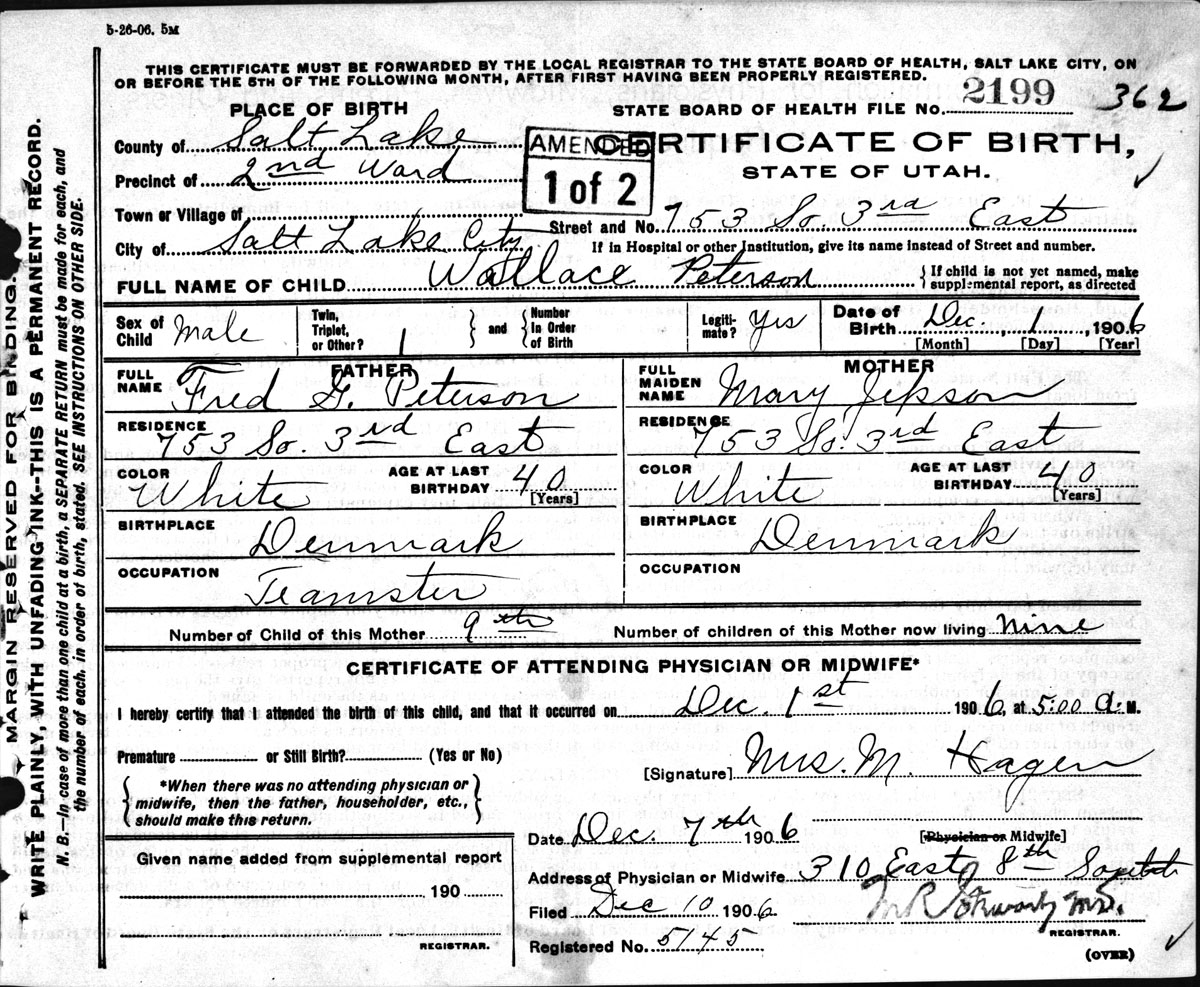 5-26-06. 5M
THIS CERTIFICATE MUST BE FORWARDED BY THE LOCAL REGISTRAR TO THE STATE BOARD OF HEALTH, SALT LAKE CITY, ON
OR BEFORE THE 5TH OF THE FOLLOWING MONTH, AFTER FIRST HAVING BEEN PROPERLY REGISTERED.
PLACE OF BIRTH
STATE BOARD OF HEALTH FILE No. 2199 362
County of Salt Lake
AMENDED
1 of 2
CERTIFICATE OF BIRTH,
STATE OF UTAH.
Precinct of 2nd Ward
Town or Village of
Street and No. 753 So. 3rd East
City of Salt Lake City
If in Hospital or other Institution, give its name instead of Street and number.
FULL NAME OF CHILD Wallace Peterson
{ If child is not yet named, make
supplemental report, as directed
Sex of Child Male
Twin, Triplet, or Other? 1 } and { Number In Order of Birth
Legiti-mate? Yes
Date of Birth Dec. 1, 1906
[Month] [Day] [Year]
FATHER
FULL NAME Fred G. Peterson
RESIDENCE 753 So. 3rd East
COLOR White
AGE AT LAST BIRTHDAY 40
[Years]
BIRTHPLACE Denmark
OCCUPATION Teamster
MOTHER
FULL MAIDEN NAME Mary Jepson
RESIDENCE 753 So. 3rd East
COLOR White
AGE AT LAST BIRTHDAY 40
[Years]
BIRTHPLACE Denmark
OCCUPATION
Number of Child of this Mother 9th
Number of children of this Mother now living Nine
CERTIFICATE OF ATTENDING PHYSICIAN OR MIDWIFE*
I hereby certify that I attended the birth of this child, and that it occurred on Dec. 1st 1906, at 5:00 A. M.
Premature or Still Birth? (Yes or No)
[Signature] Mrs. M. Hagen
{ *When there was no attending physician or
midwife, then the father, householder, etc.,
should make this return. }
Date Dec. 7th 1906
[Physician or Midwife]
Given name added from supplemental report
190
REGISTRAR.
Address of Physician or Midwife 310 East 8th South
Filed Dec 10 1906
M.D.
REGISTRAR.
Registered No. 5145
(OVER)
MARGIN RESERVED FOR BINDING.
WRITE PLAINLY, WITH UNFADING INK--THIS IS A PERMANENT RECORD.
N. B.—In case of more than one child at a birth, a SEPARATE RETURN must be made for each, and
the number of each, in order of birth, stated. SEE INSTRUCTIONS ON OTHER SIDE.